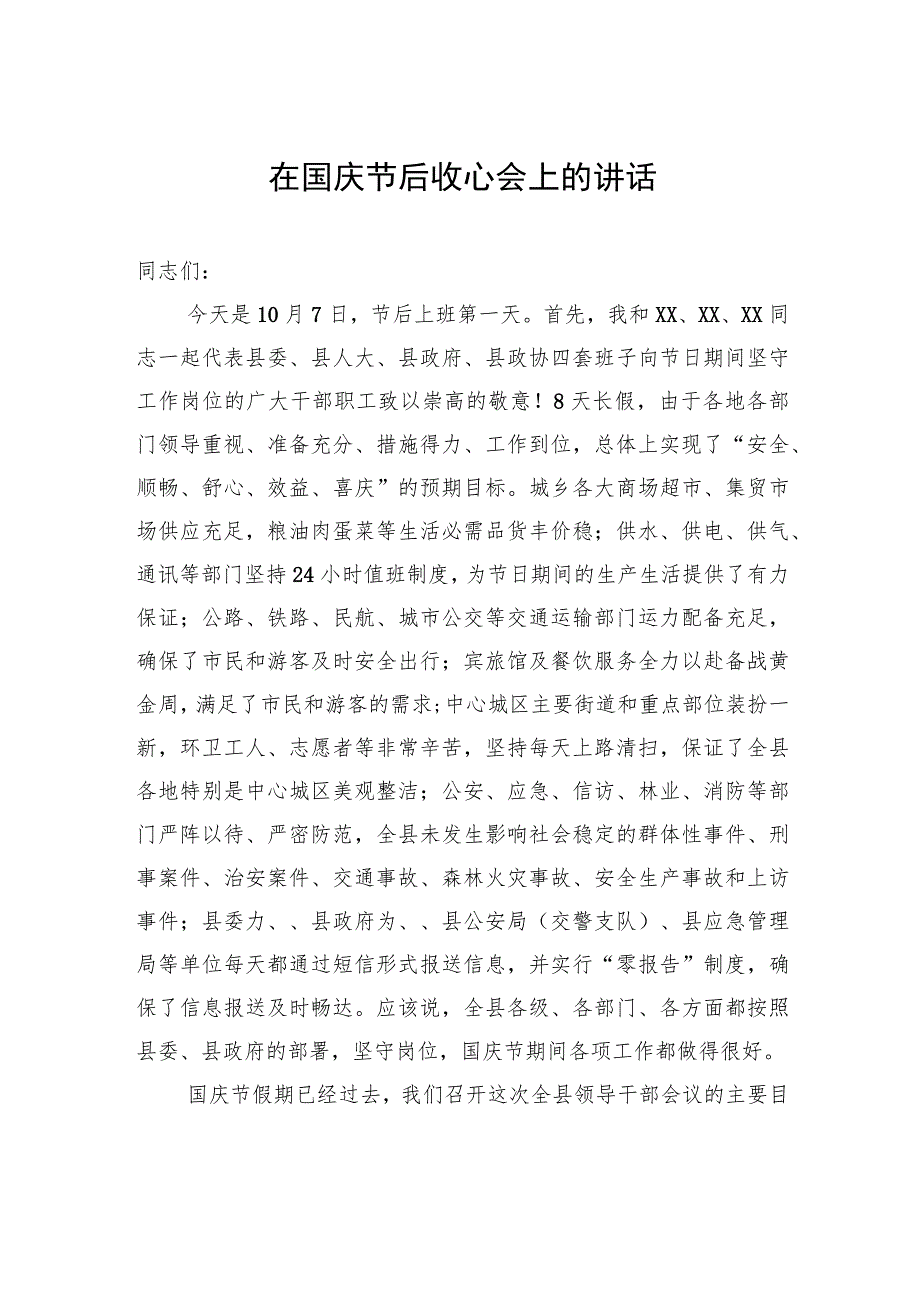 在国庆节后收心会上的讲话
同志们：
今天是10月7日，节后上班第一天。首先，我和XX、XX、XX同
志一起代表县委、县人大、县政府、县政协四套班子向节日期间坚守
工作岗位的广大干部职工致以崇高的敬意！8天长假，由于各地各部
门领导重视、准备充分、措施得力、工作到位，总体上实现了“安全、
顺畅、舒心、效益、喜庆”的预期目标。城乡各大商场超市、集贸市
场供应充足，粮油肉蛋菜等生活必需品货丰价稳；供水、供电、供气、
通讯等部门坚持24小时值班制度，为节日期间的生产生活提供了有力
保证；公路、铁路、民航、城市公交等交通运输部门运力配备充足，
确保了市民和游客及时安全出行；宾旅馆及餐饮服务全力以赴备战黄
金周，满足了市民和游客的需求;中心城区主要街道和重点部位装扮一
新，环卫工人、志愿者等非常辛苦，坚持每天上路清扫，保证了全县
各地特别是中心城区美观整洁；公安、应急、信访、林业、消防等部
门严阵以待、严密防范，全县未发生影响社会稳定的群体性事件、刑
事案件、治安案件、交通事故、森林火灾事故、安全生产事故和上访
事件；县委力、、县政府为、、县公安局（交警支队）、县应急管理
局等单位每天都通过短信形式报送信息，并实行“零报告”制度，确
保了信息报送及时畅达。应该说，全县各级、各部门、各方面都按照
县委、县政府的部署，坚守岗位，国庆节期间各项工作都做得很好。
国庆节假期已经过去，我们召开这次全县领导干部会议的主要目